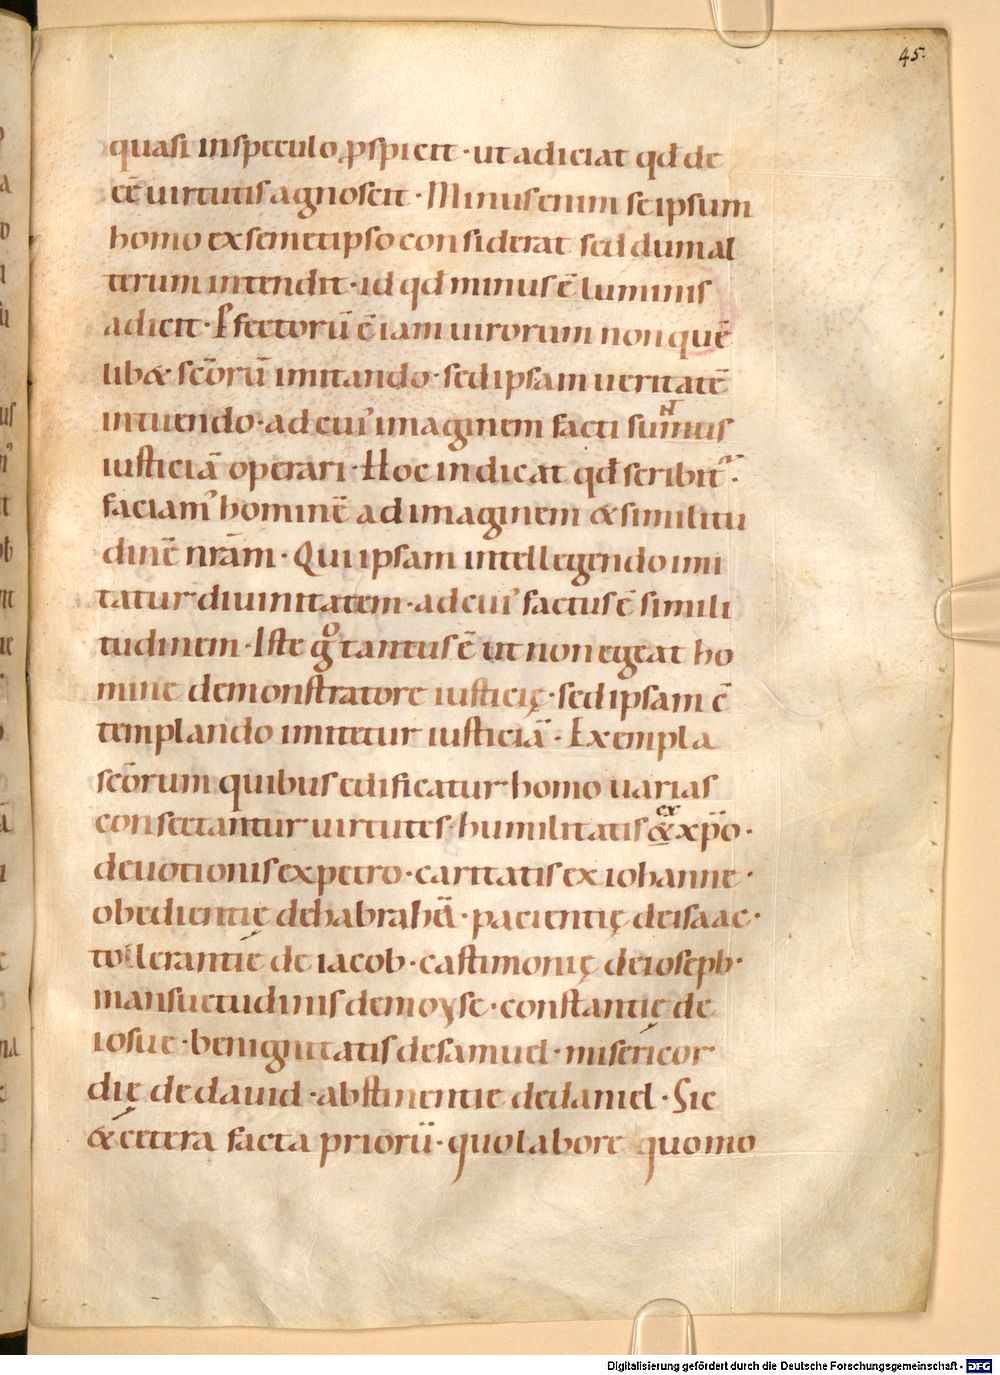 45.
quasi in speculo ꝓspicit · ut adiciat qđ de
eē uirtutis agnoscit · Minus enim se ipsum
homo ex semetipso considerat sed dum al
terum intendit · id qđ minus ē luminis
adicit · Pfectorū ē iam uirorum non quē
libæ scōrū imitando · sed ipsam ueritatē
intuendo · ad cuiꝰ imaginem facti sumus
iusticiā operari · Hoc indicat qđ scribit̃ ·
faciamꝰ hominē ad imaginem & similitu
dinē nr̄am · Qui ipsam intellegendo imi
tatur diuinitatem · ad cuiꝰ factus ē simili
tudinem · Iste gͦ tantus ē ut non egeat ho
mine demonstratore iusticię · sed ipsam c̄
templando imitetur iusticiā · Exempla
scōrum quibus edificatur homo uarias
consectantur uirtutes · humilitatis ex xp̄o ·
deuotionis ex petro · caritatis ex iohanne ·
obedientię de habrahā · pacientię de isaac ·
tollerantie de iacob · castimonię de ioseph ·
mansuetudinis de moyse · constantię de
iosue · benignitatis de samuel · misericor
dię de dauid · abstinentie de daniel · Sic
& cetera facta priorū · quo labore quomo
Digitalisierung gefördert durch die Deutsche Forschungsgemeinschaft - DFG